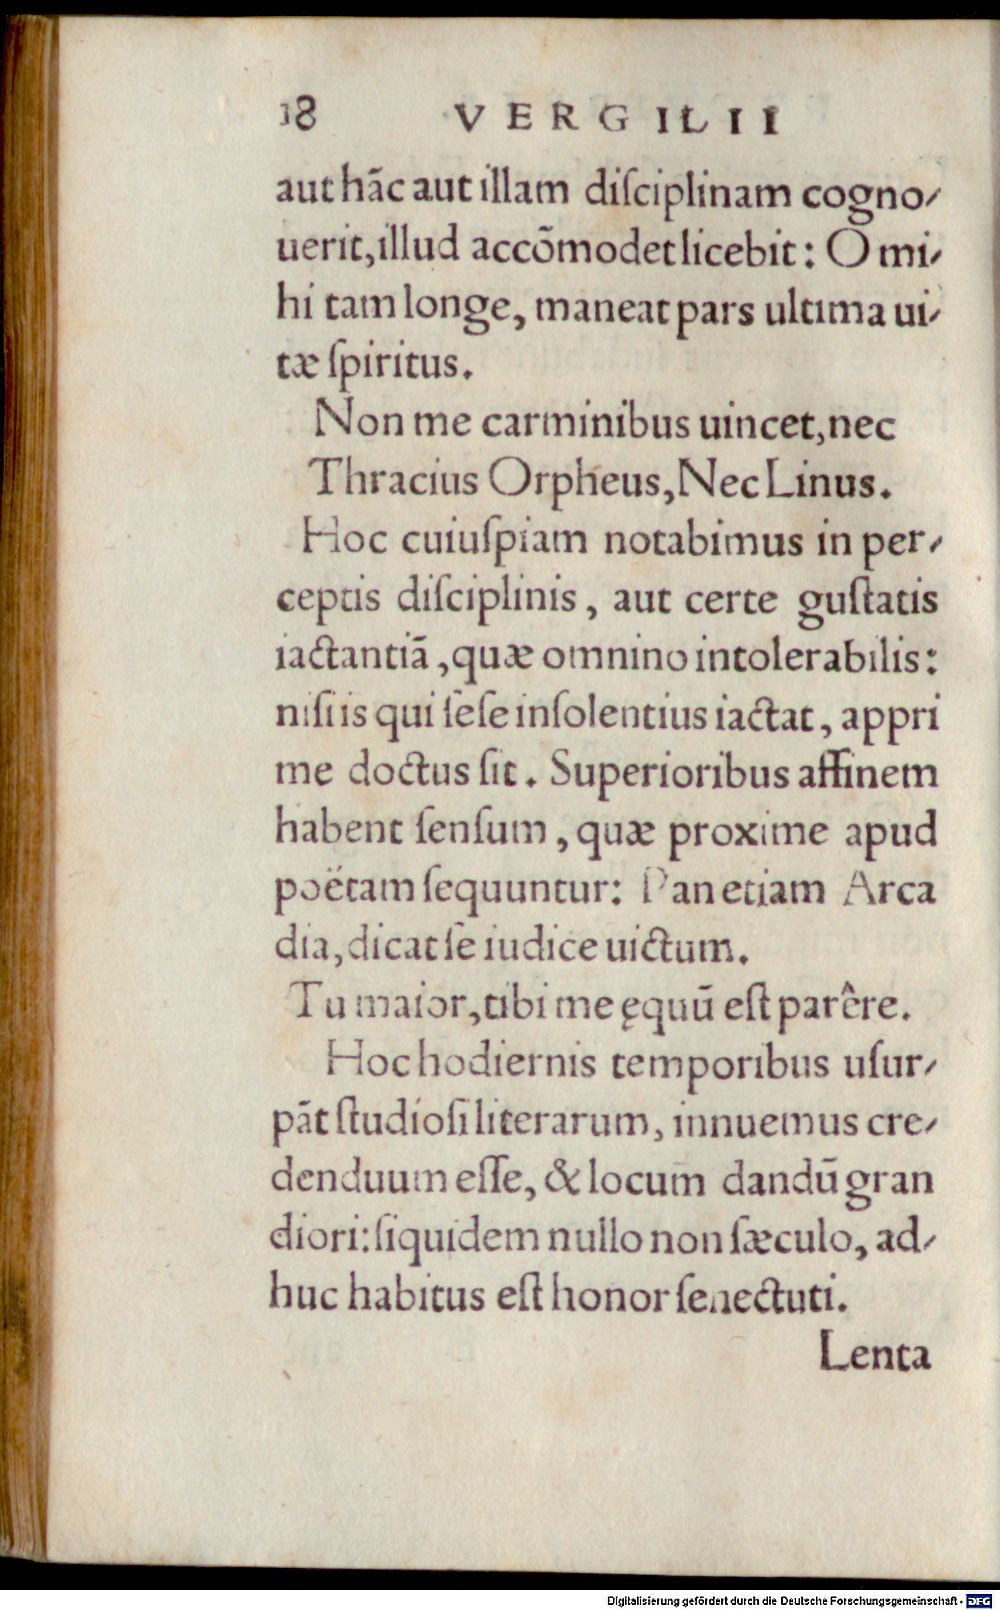 18 VERGILII
aut hāc aut illam diſciplinam cogno-
uerit, illud accōmodet licebit: O mi-
hi tam longe, maneat pars ultima ui-
tæ ſpiritus.
Non me carminibus uincet, nec
Thracius Orpheus, Nec Linus.
Hoc cuiuſpiam notabimus in per-
ceptis diſciplinis, aut certe guſtatis
iactantiā, quæ omnino intolerabilis:
niſi is qui ſeſe inſolentius iactat, appri
me doctus ſit. Superioribus affinem
habent ſenſum, quæ proxime apud
poëtam ſequuntur: Pan etiam Arca
dia, dicat ſe iudice uictum.
Tu maior, tibi me ęquū eſt parêre.
Hoc hodiernis temporibus uſur-
pāt ſtudioſi literarum, innuemus cre-
denduum eſſe, & locum dandū gran
diori: ſiquidem nullo non ſæculo, ad-
huc habitus eſt honor ſenectuti.
Lenta
Digitalisierung gefördert durch die Deutsche Forschungsgemeinschaft - DFG